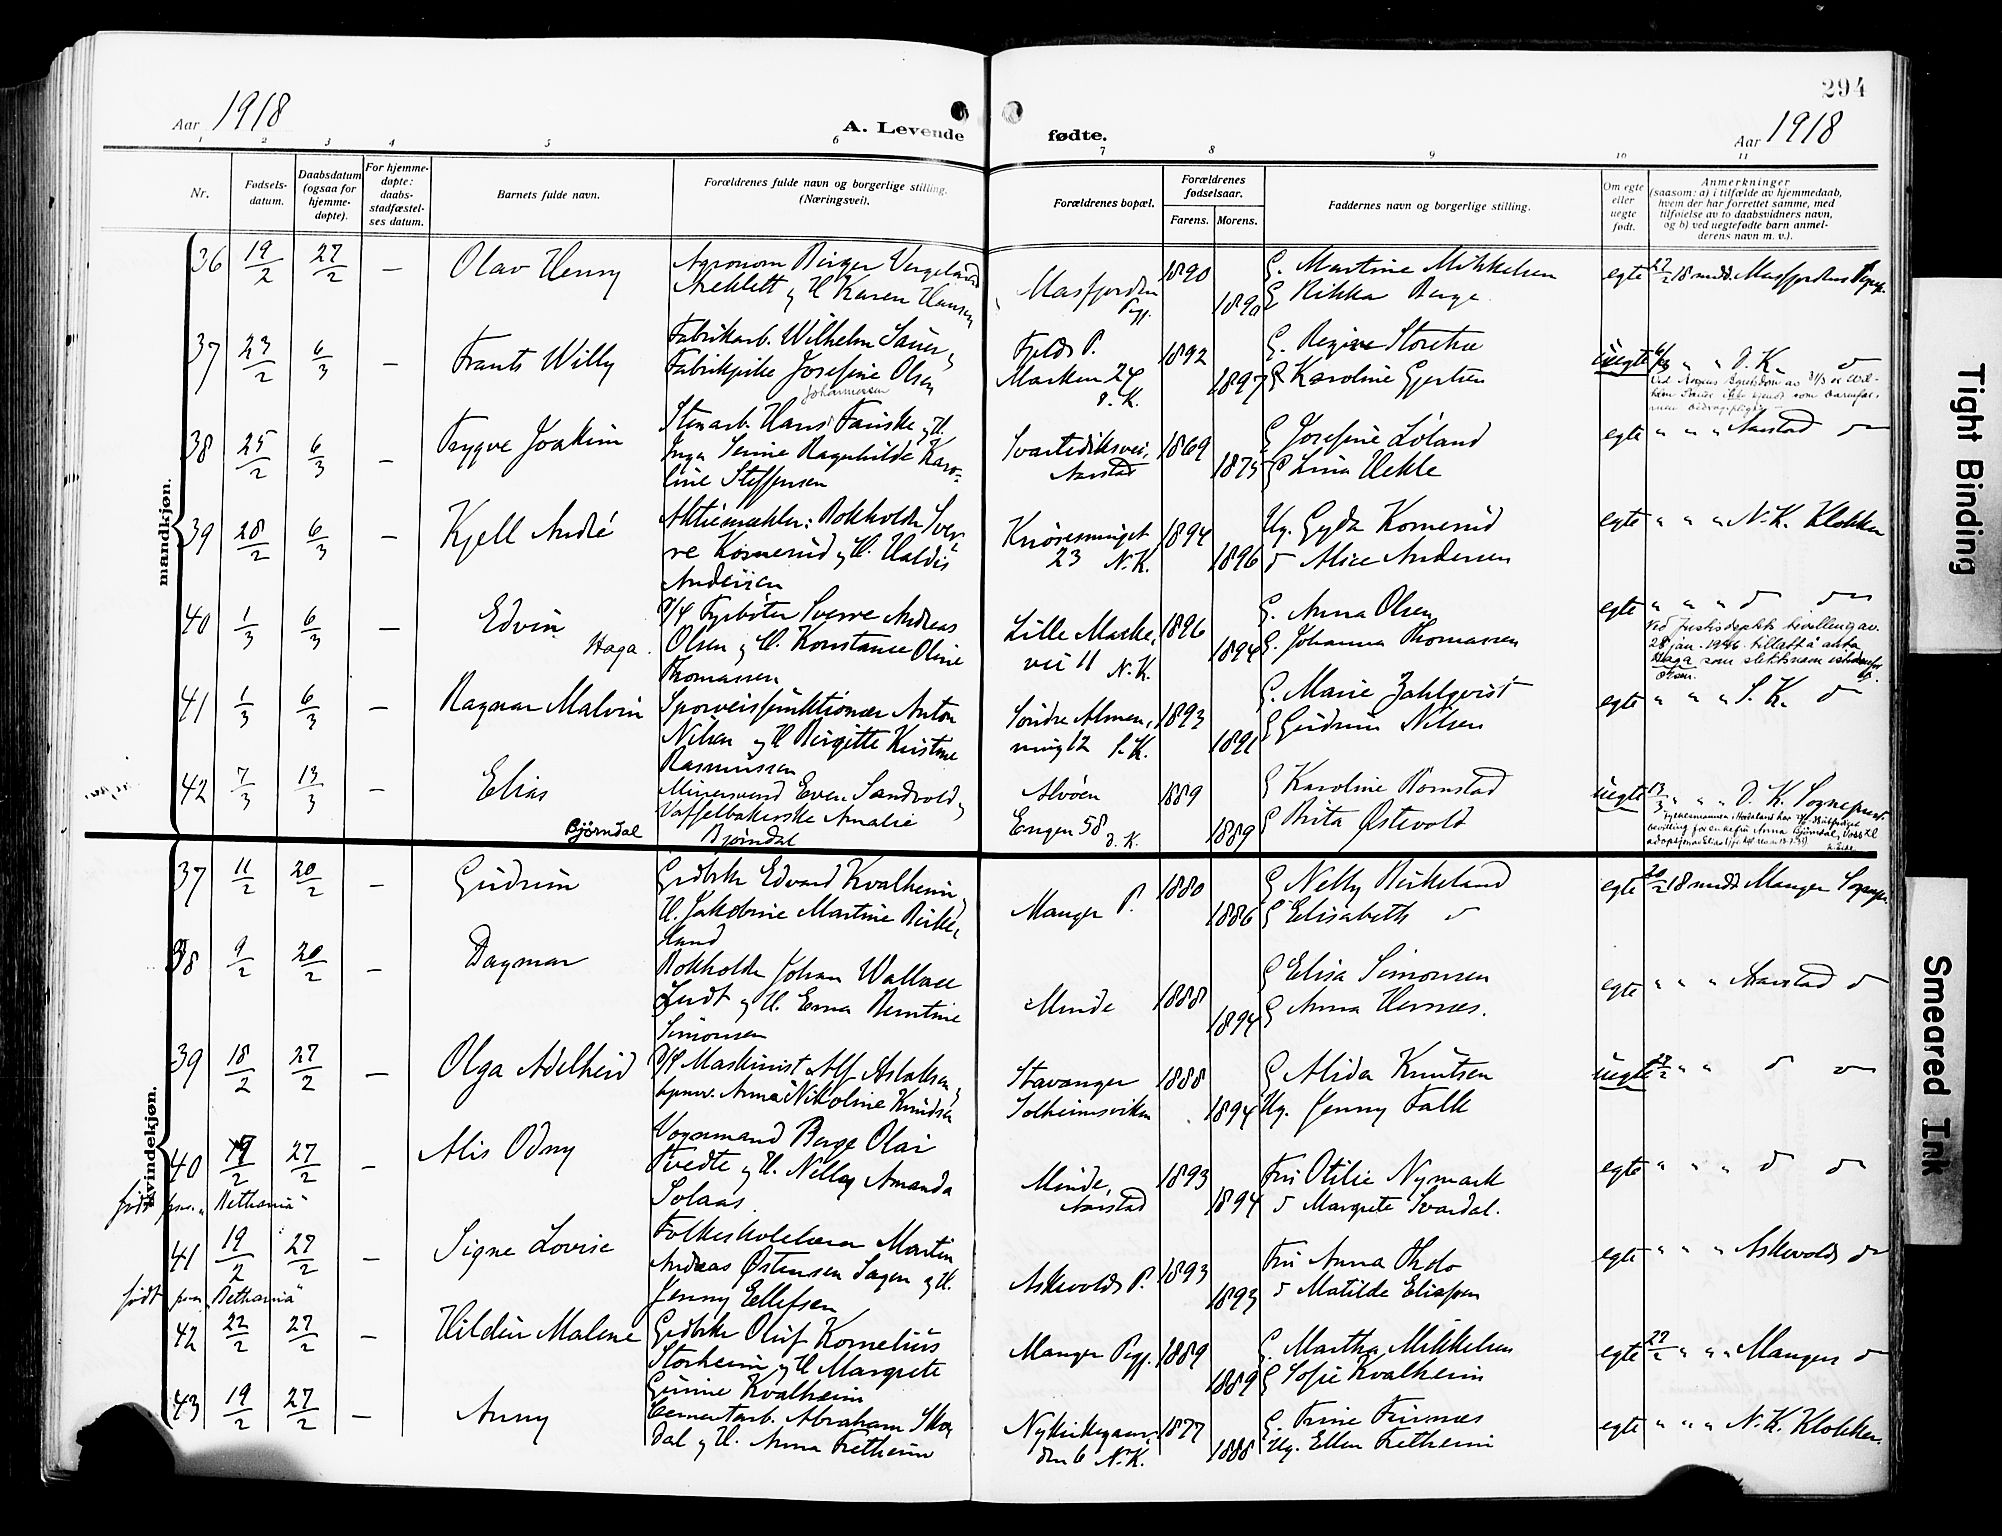 294
Aar 1918
A. Levende fødte.
Aar 1918
1 2 3 4 5 6 7 8 9 10 11
Nr.
Fødsels-
datum.
Daabsdatum
(ogsaa for
hjemme-
døpte).
For hjemme-
døpte:
daabs-
stadfæstel-
ses datum.
Barnets fulde navn.
Forældrenes fulde navn og borgerlige stilling.
(Næringsvei).
Forældrenes bopæl.
Forældrenes
fødselsaar.
Farens. Morens.
Faddernes navn og borgerlige stilling.
Om egte
eller
uegte
født.
Anmerkninger
(saasom: a) i tilfælde av hjemmedaab,
hvem der har forrettet samme, med
tilføielse av to daabsvidners navn,
og b) ved uegtefødte barn anmel-
derens navn m. v.).
mandkjøn.
36 19/2 27/2 — Olav Henny
Agronom Birger Vergeland
Heklett og H. Karen Hansen
Masfjorden
Pgj.
1890
1890
G. Martine Mikkelsen
G Rikka Berge
egte 27/2 18 medd. Masfjordens
37 23/2 6/3 — Frants Willy
Fabrikarb. Wilhelm Sauer,
Fabrikpike Josefine Olsen
Johannessen
Fjelds P.
Marken 24
D. K.
1892
1897
G. Regine Storetra
G Karoline Gjertsen
uegte 6/3 " " D. K.
38 25/2 6/3 — Trygve Joakim
Stenarb. Hans Fauske og H.
Inga Serine Ragnhilde Karo-
line Steffensen
Svartediksvei,
Aarstad
1869
1875
G Josefine Loland
G Lina Hekle
egte " " " Aarstad
39 28/2 6/3 — Kjell André
Aktiemægler: Bokholder Sver-
re Kornerud og H. Haldis
Andersen
Knøsesmuget
23 N. K.
1894
1896
Ug. Gyda Kornerud
Alice Andersen
egte " " " N. K. Klokker
40 1/3 6/3 — Edvin
Haga.
D/f Fyrbøter Sverre Andreas
Olsen og H. Konstance Oline
Thomassen
Lille Marke,
vei 11 N. K.
1896
1894
G. Anna Olsen
G. Johanna Thomassen
egte " " "
Ved Justisdeptets bevilling av
28 jan. 1946 tillatt å anta
Haga som slektsnavn istedenfor
Olsen.
41 1/3 6/3 — Ragnar Malvin
Sporveisfunktionær Anton
Nilsen og H Birgitte Kristine
Rasmussen
Søndre Almen,
ning 12 S. K.
1893
1891
G. Marie Zahlqvist
G Gudrun Nilsen
egte " " " S. K.
42 7/3 13/3 — Elias
Bjørndal
Minersvend Even Sandvold,
Vaffelbakerske Amalie
Bjørndal
Alvøen
Engen 58 D. K.
1889
1889
G Karoline Romstad
G Brita Østevold
uegte 13/3 " " " D. K. Sogneprest
kvindekjøn.
37 11/2 20/2 — Gudrun
Grdbrk Edvard Kvalheim,
H. Jakobine Martine Birke,
land
Manger P.
1880
1886
G Nelly Birkeland
G Elisabeth
egte 20/2 18 medd Manger Sognepr.
38 9/2 20/2 — Dagmar
Bokholder Johan Wallace
Lindt og H. Erna Berntine
Simonsen
Minde
1888
1894
G Elisa Simonsen
G Anna Hernæs.
egte " " " Aarstad
39 18/2 27/2 — Olga Adelheid
D/f Maskinist Alf Aslaksen,
Anna Nikoline Knudsen
Stavanger
Solheimsviken
1888
1894
G Alida Knutsen
Ug. Jenny Falk
uegte 27/2 " "
40 19/2 27/2 — Alis Odny
født paa "Bethania"
Vognmand Berge Olai
Tvedte og H. Nelly Amanda
Solaas
Minde,
Aarstad
1893
1894
Fru Otilie Nymark
Margrete Svardal.
egte " " "
41 19/2 27/2 — Signe Lovise
født paa "Bethania"
Folkeskolelærer Martin
Andreas Østensen Sagen og H.
Jenny Ellefsen
Askevolds P.
1893
1893
Fru Anna Tholo
Matilde Eliassen
egte " " " Askevolds
42 22/2 27/2 — Hildur Malene
Grdbrk Oluf Kornelius
Storheim og H Margrete
Gurine Kvalheim
Manger Pgj.
1889
1889
G. Martha Mikkelsen
G Sofie Kvalheim
egte 27/2 " " " Mangers
43 19/2 27/2 — Anny
Cementarb. Abraham Sko
dal og H. Anna Fretheim
Nykirkegaar,
den 6 N. K.
1877
1888
G. Trine Furnæs
Ug. Ellen Fretheim
egte " " " N. K. Klokker.
Tight Binding
Smeared Ink